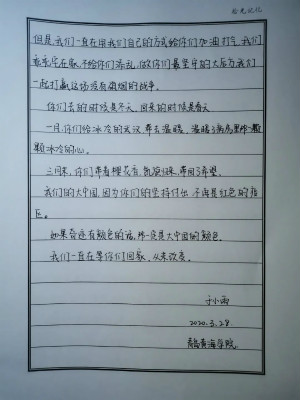 拾光记忆
但是,我们一直在用我们自己的方式给你们加油打气,我们
乖乖呆在家,不给你们添乱,做你们最坚实的大后方,我们
一起打赢这场没有硝烟的战争。
你们去的时候是冬天,回来的时候是春天
一月,你们给冰冷的武汉,带去温暖,温暖了病房里那一颗
颗冰冷的心。
三月末,你们带着樱花香,凯旋归来,带回了希望。
我们的大中国,因为你们的坚持付出,不再是红色的疫
区。
如果春还有颜色的话,那一定是大中国的颜色。
我们一直在等你们回家,从未改变。
于小雨
2020.3.28
青岛黄海学院